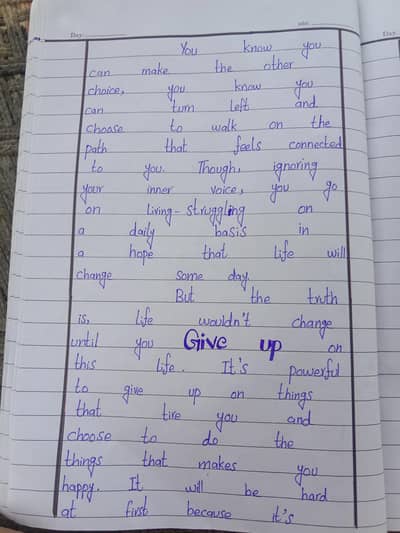 Day
Date
Day
You know you
can make the other
choice, you know you
can turn left and
choose to walk on the
path that feels connected
to you. Though, ignoring
your inner voice, you go
on living-struggling on
a daily basis in
a hope that life will
change some day.
But the truth
is, life wouldn't change
until you Give up on
this life. It's powerful
to give up on things
that tire you and
choose to do the
things that makes you
happy. It will be hard
at first because it's